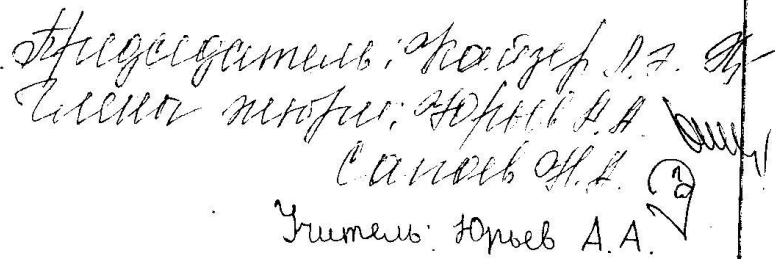 Председатель: Кайзер Л.Э.
Члены жюри: Юрьев А.А.
Сапоев Н.А.
Учитель: Юрьев А.А.